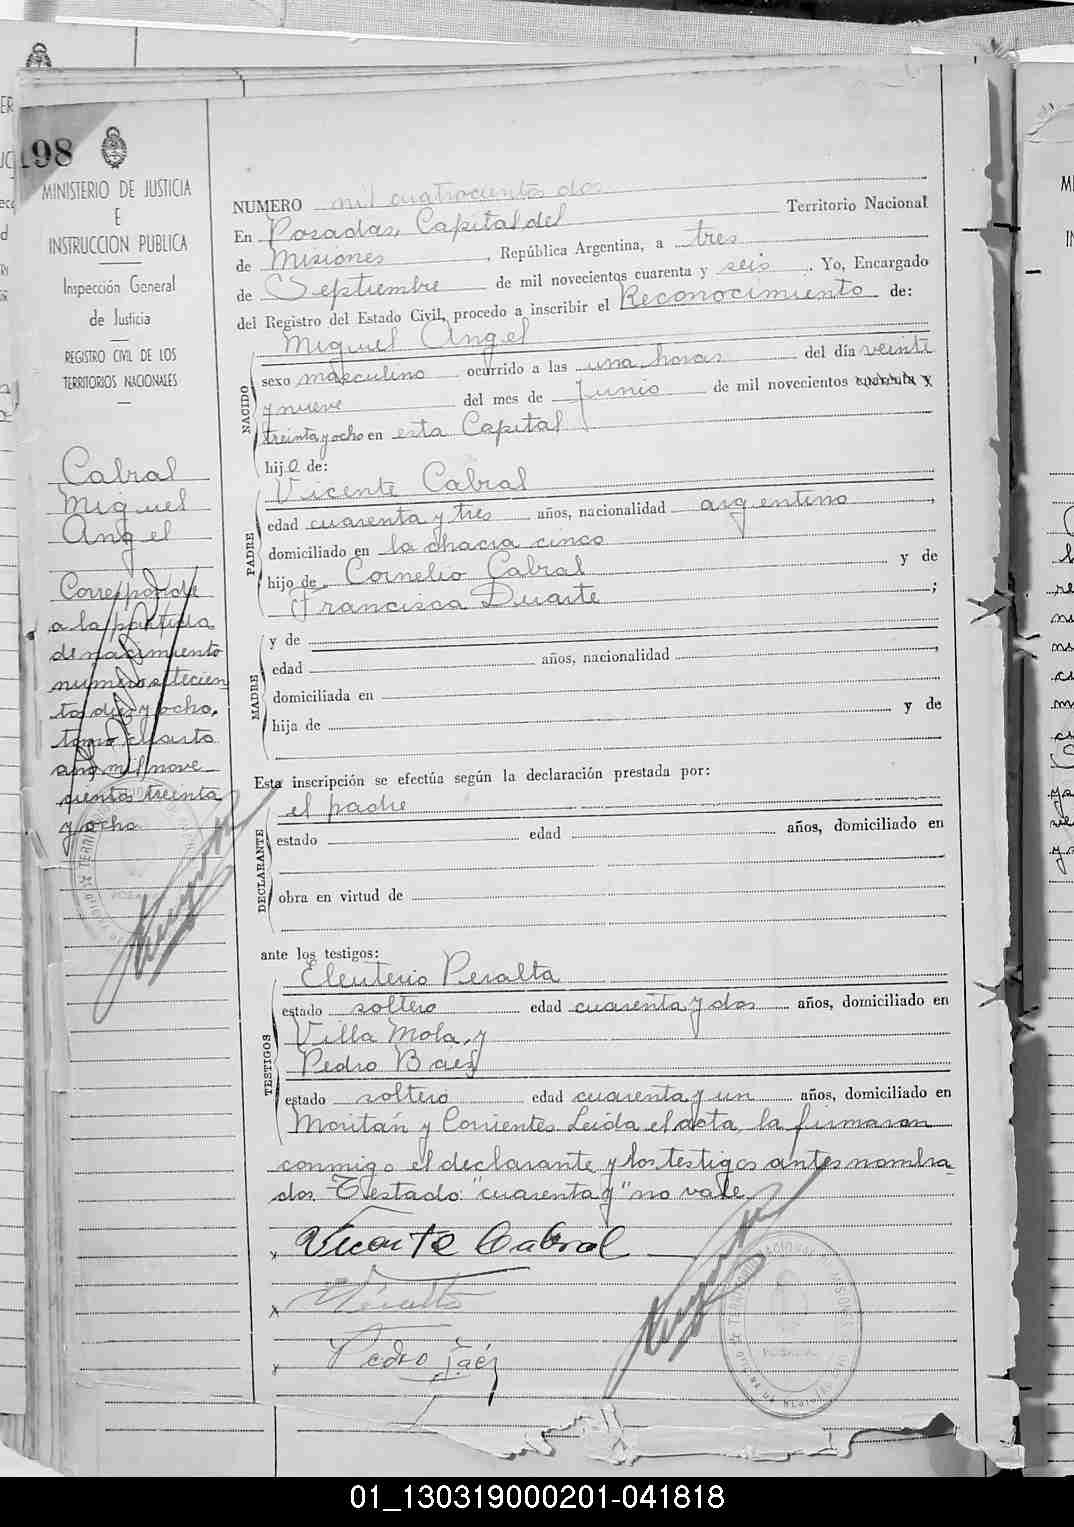 198
MINISTERIO DE JUSTICIA
E
INSTRUCCION PUBLICA
Inspección General
de Justicia
REGISTRO CIVIL DE LOS
TERRITORIOS NACIONALES
Cabral
Miguel
Angel
Corresponde
a la partida
de nacimiento
numero setecien
tos diez y ocho,
tomo cuarto
año mil nove
cientos treinta
y ocho.
NUMERO mil cuatrocientos dos
En Posadas, Capital del Territorio Nacional
de Misiones, República Argentina, a tres
de Septiembre de mil novecientos cuarenta y seis. Yo, Encargado
del Registro del Estado Civil, procedo a inscribir el Reconocimiento de:
NACIDO
Miguel Angel
sexo masculino ocurrido a las una horas del día veinti
y nueve del mes de Junio de mil novecientos cuarenta y
treinta y ocho en esta Capital
hijo de:
PADRE
Vicente Cabral
edad cuarenta y tres años, nacionalidad argentino,
domiciliado en la chacra cinco
hijo de Cornelio Cabral y de
Francisca Duarte;
MADRE
y de
edad años, nacionalidad,
domiciliada en
hija de y de
Esta inscripción se efectúa según la declaración prestada por:
DECLARANTE
el padre
estado edad años, domiciliado en
obra en virtud de
ante los testigos:
TESTIGOS
Eleuterio Peralta
estado soltero edad cuarenta y dos años, domiciliado en
Villa Mola, y
Pedro Baez
estado soltero edad cuarenta y un años, domiciliado en
Moritán y Corrientes Leida el acta, la firmaron
conmigo el declarante y los testigos antes nombra
dos. Testado: "cuarenta y" no vale
Vicente Cabral
Peralta
Pedro Baéz
01_130319000201-041818